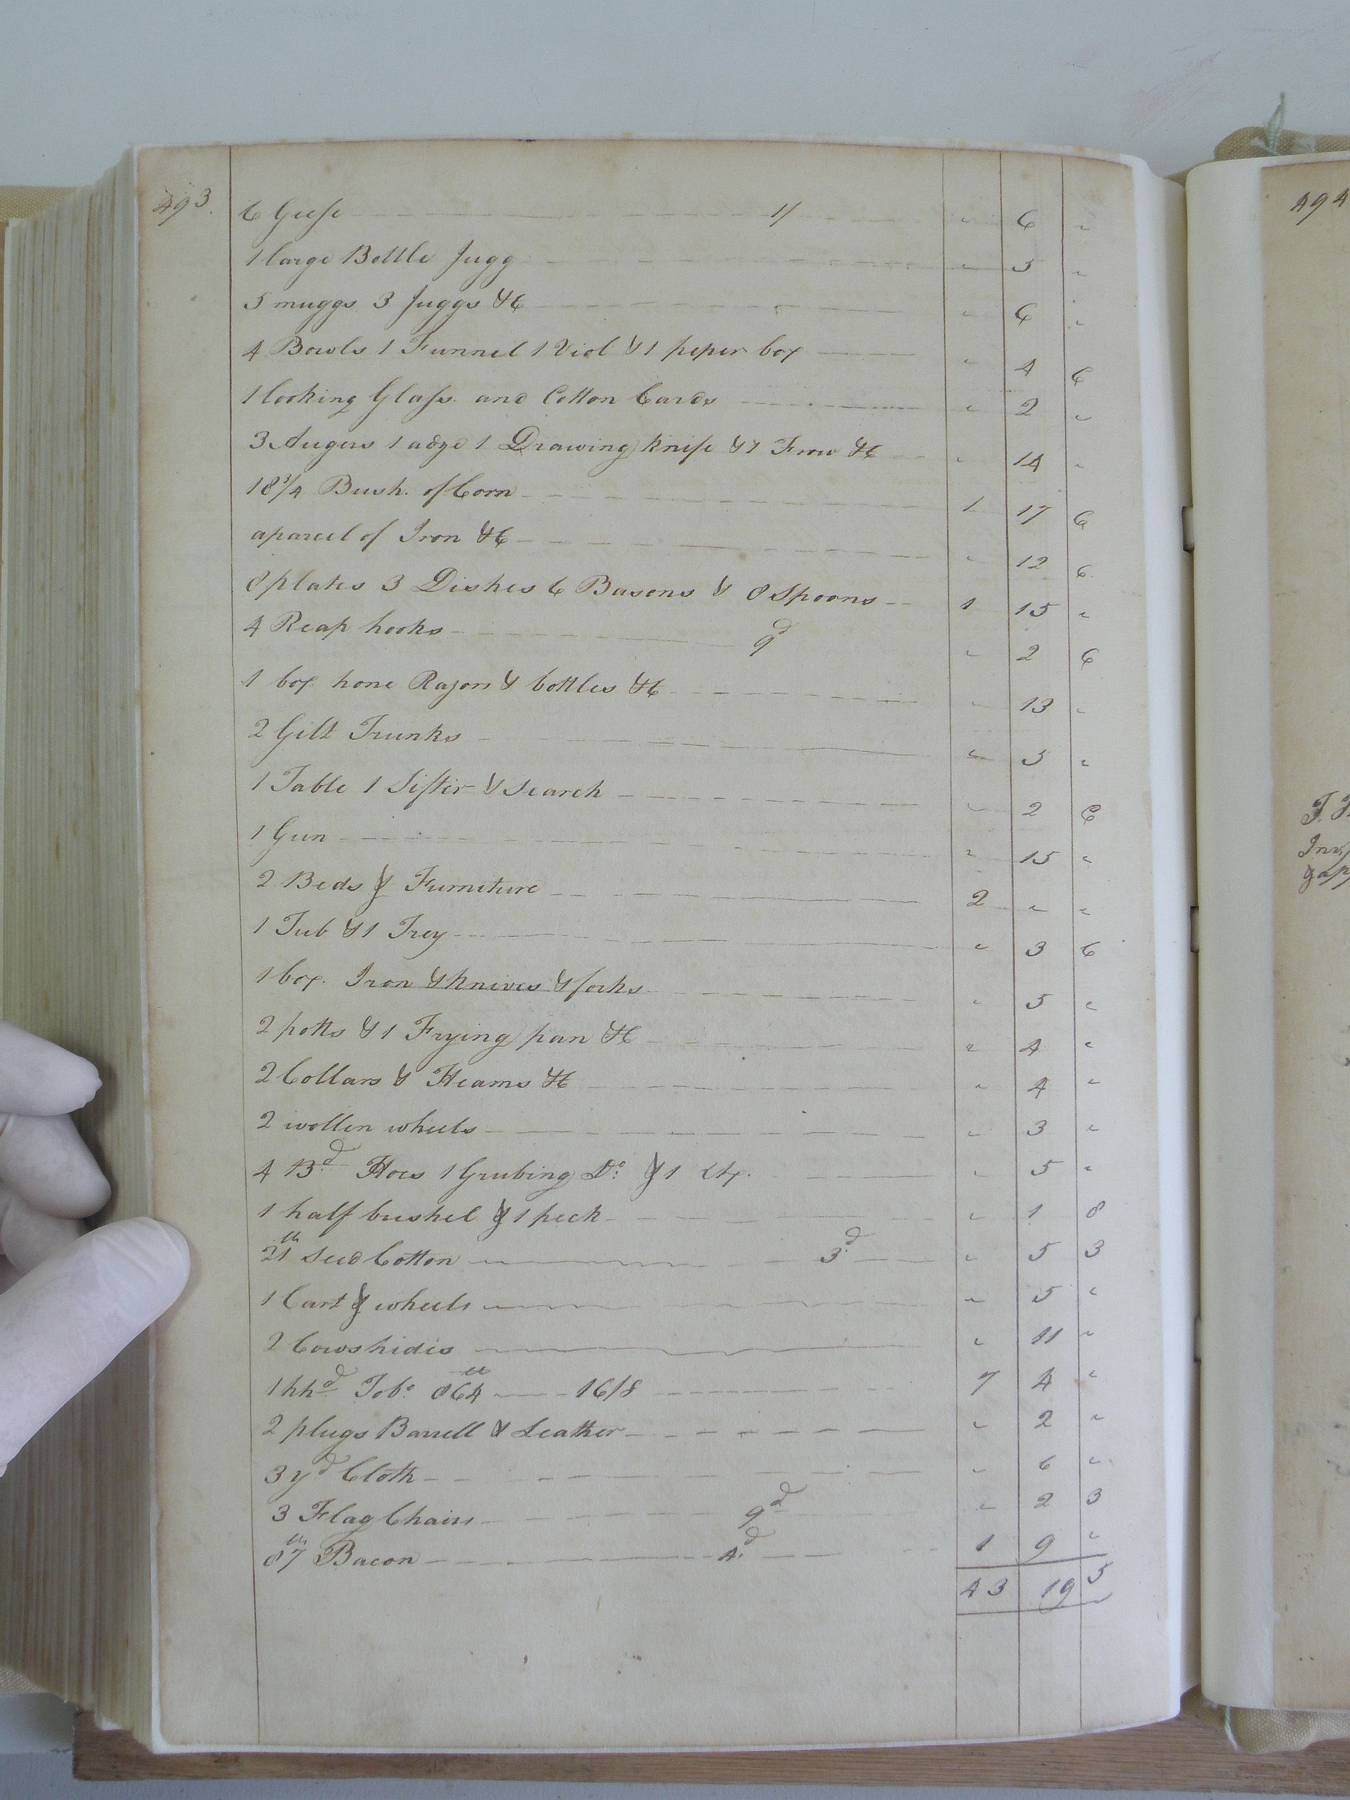 493.
6 Geese 1/ " 6 "
1 large Bottle Jugg " 5 "
5 muggs 3 Juggs &C " 6 "
4 Bowls 1 Funnel 1 Viol & 1 peper box " 4 6
1 looking Glass. and Cotton Cards " 2 "
3 Augers 1 adze 1 Drawing knife & 1 Frow &C " 14 "
18 3/4 Bush. of Corn 1 17 6
a parcel of Iron &C " 12 6
8 plates 3 Dishes 6 Basons & 8 Spoons 1 15 "
4 Reap hooks 9d " 2 6
1 box hone Razors & bottles &C " 13 "
2 Gilt Trunks " 5 "
1 Table 1 Sifter & Search " 2 6
1 Gun " 15 "
2 Beds & Furniture 2 " "
1 Tub & 1 Trey " 3 6
1 box. Iron & knives & forks " 5 "
2 potts & 1 Frying pan &C " 4 "
2 Collars & Heams &C " 4 "
2 wollen wheels " 3 "
4 Bd Hoes 1 Grubing Do & 1 " 5 "
1 half bushel & 1 peck " 1 8
21 lb Seed Cotton 3d " 5 3
1 Cart & wheels " 5 "
2 Cowshides " 11 "
1 hhd Tobo 864 lb 16/8 7 4 "
2 plugs Barrell & Leather " 2 "
3 yd Cloth " 6 "
3 Flag Chairs 9d " 2 3
87 lb Bacon 4d 1 9 "
43 19 5
494